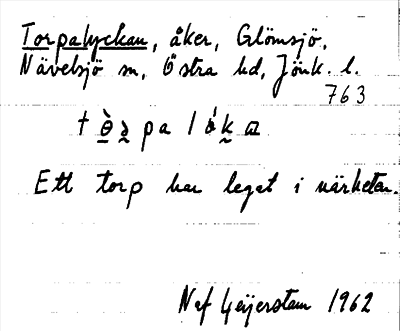 Torpalyckan, åker, Glömsjö,
Nävelsjö sn, Östra hd, Jönk. l.
763
Ett torp har legat i närheten.
Naf Geijerstam 1962